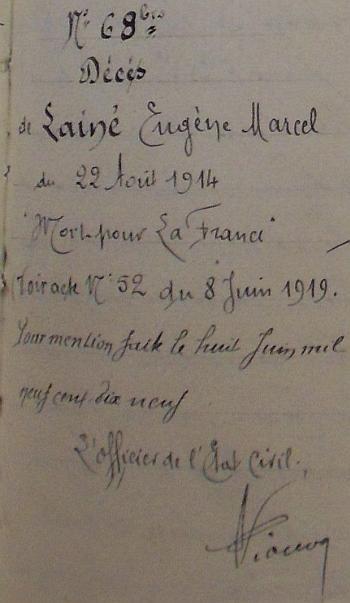 N° 68 bis
Décès
de Lainé Eugène Marcel
du 22 Août 1914
"Mort pour La France"
(Voir acte N° 52 du 8 Juin 1919.
Pour mention faite le huit Juin mil
neuf cent dix neuf
L'officier de l'Etat Civil.,